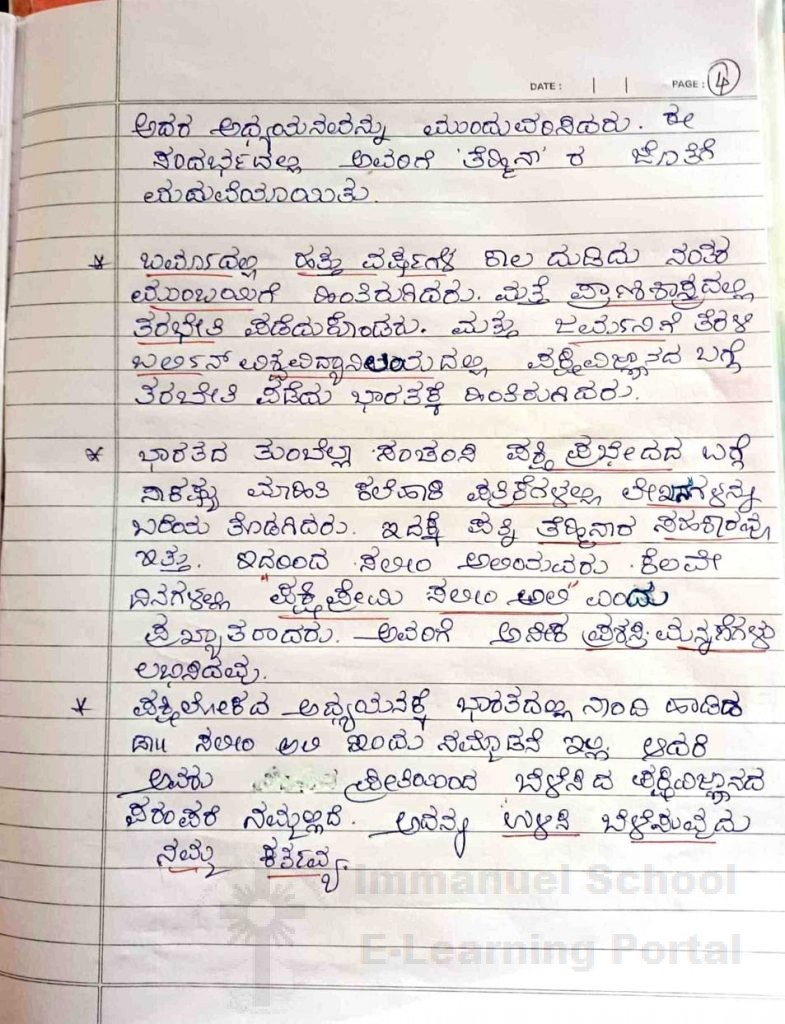 DATE : | | PAGE : 4
ಅದರ ಅಧ್ಯಯನವನ್ನು ಮುಂದುವರಿಸಿದರು. ಈ
ಸಂದರ್ಭದಲ್ಲಿ ಅವರಿಗೆ 'ತೆಹ್ಮಿನಾ' ರ ಜೊತೆಗೆ
ಮದುವೆಯಾಯಿತು.
* ಬರ್ಮಾದಲ್ಲಿ ಹತ್ತು ವರ್ಷಗಳ ಕಾಲ ದುಡಿದು ನಂತರ
ಮುಂಬಯಿಗೆ ಹಿಂತಿರುಗಿದರು. ಮತ್ತೆ ಪ್ರಾಣಿಶಾಸ್ತ್ರದಲ್ಲಿ
ತರಬೇತಿ ಪಡೆದುಕೊಂಡರು. ಮತ್ತು ಜರ್ಮನಿಗೆ ತೆರಳಿ
ಬರ್ಲಿನ್ ವಿಶ್ವವಿದ್ಯಾನಿಲಯದಲ್ಲಿ ಪಕ್ಷಿವಿಜ್ಞಾನದ ಬಗ್ಗೆ
ತರಬೇತಿ ಪಡೆದು ಭಾರತಕ್ಕೆ ಹಿಂತಿರುಗಿದರು.
* ಭಾರತದ ತುಂಬೆಲ್ಲಾ ಸಂಚರಿಸಿ ಪಕ್ಷಿ ಪ್ರಭೇದದ ಬಗ್ಗೆ
ಸಾಕಷ್ಟು ಮಾಹಿತಿ ಕಲೆಹಾಕಿ ಪತ್ರಿಕೆಗಳಲ್ಲಿ ಲೇಖನಗಳನ್ನು
ಬರೆಯ ತೊಡಗಿದರು. ಇದಕ್ಕೆ ಪತ್ನಿ ತೆಹ್ಮಿನಾರ ಸಹಕಾರವೂ
ಇತ್ತು. ಇದರಿಂದ ಸಲೀಂ ಅಲಿಯವರು ಕೆಲವೇ
ದಿನಗಳಲ್ಲಿ "ಪಕ್ಷಿಪ್ರೇಮಿ ಸಲೀಂ ಅಲಿ" ಎಂದು
ಪ್ರಖ್ಯಾತರಾದರು. ಅವರಿಗೆ ಅನೇಕ ಪ್ರಶಸ್ತಿ ಮನ್ನಣೆಗಳು
ಲಭಿಸಿದವು.
* ಪಕ್ಷಿಲೋಕದ ಅಧ್ಯಯನಕ್ಕೆ ಭಾರತದಲ್ಲಿ ನಾಂದಿ ಹಾಡಿದ
ಡಾ|| ಸಲೀಂ ಅಲಿ ಇಂದು ನಮ್ಮೊಡನೆ ಇಲ್ಲ. ಆದರೆ
ಅವರು ಪ್ರೀತಿಯಿಂದ ಬೆಳೆಸಿದ ಪಕ್ಷಿವಿಜ್ಞಾನದ
ಪರಂಪರೆ ನಮ್ಮಲ್ಲಿದೆ. ಅದನ್ನು ಉಳಿಸಿ ಬೆಳೆಸುವುದು
ನಮ್ಮ ಕರ್ತವ್ಯ.
Immanuel School
E-Learning Portal